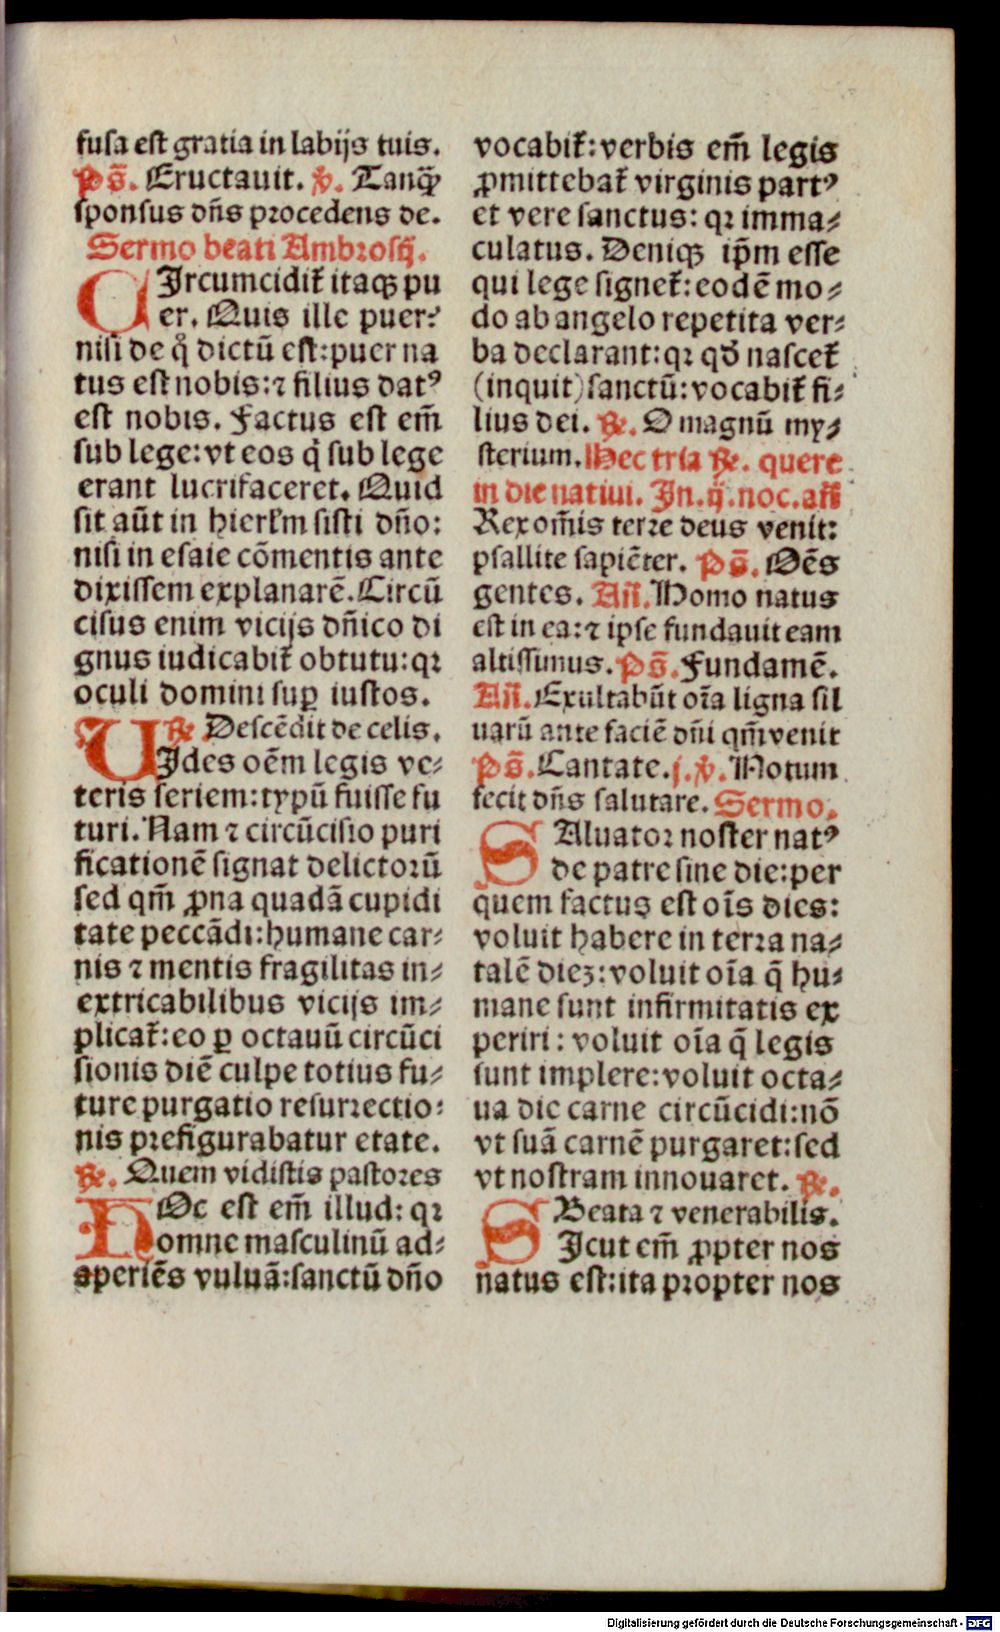 fusa est gratia in labijs tuis.
Ps̄. Eructauit. ℣. Tanq̄ꝫ
sponsus dn̄s procedens de.
Sermo beati Ambrosij.
CIrcumcidit᷑ itaqꝫ pu
er. Quis ille puer?
nisi de qͦ dictū est: puer na
tus est nobis: ⁊ filius datꝰ
est nobis. Factus est em̄
sub lege: vt eos q̇ sub lege
erant lucrifaceret. Quid
sit aūt in hierłm sisti dn̄o:
nisi in esaie cōmentis ante
dixissem explanarē. Circū
cisus enim vicijs dn̄ico di
gnus iudicabit᷑ obtutu: qꝛ
oculi domini suꝑ iustos.
℟ Descēdit de celis.
UIdes oēm legis ve⸗
teris seriem: typū fuisse fu
turi. Nam ⁊ circūcisio puri
ficationē signat delictorū
sed qm̄ ꝓna quadā cupidi
tate peccādi: humane car⸗
nis ⁊ mentis fragilitas in⸗
extricabilibus vicijs im⸗
plicat᷑: eo ꝑ octauū circūci
sionis diē culpe totius fu⸗
ture purgatio resurrectio⸗
nis prefigurabatur etate.
℟. Quem vidistis pastores
HOc est em̄ illud: qꝛ
omne masculinū ad⸗
aperiēs vuluā: sanctū dn̄o
vocabit᷑: verbis em̄ legis
ꝓmittebat᷑ virginis partꝰ
et vere sanctus: qꝛ imma⸗
culatus. Deniqꝫ ip̄m esse
qui lege signet᷑: eodē mo⸗
do ab angelo repetita ver⸗
ba declarant: qꝛ qđ nascet᷑
(inquit) sanctū: vocabit᷑ fi⸗
lius dei. ℟. O magnū my⸗
sterium. Hec tria ℟. quere
in die natiui. In .ij. noc. an̄
Rex om̄is terre deus venit:
psallite sapiēter. Ps̄. Oēs
gentes. An̄. Homo natus
est in ea: ⁊ ipse fundauit eam
altissimus. Ps̄. Fundamē.
An̄. Exultabūt oīa ligna sil
uarū ante faciē dn̄i qm̄ venit
Ps̄. Cantate. j. ℣. Notum
fecit dn̄s salutare. Sermo.
SAluator noster natꝰ
de patre sine die: per
quem factus est oīs dies:
voluit habere in terra na⸗
talē dieꝫ: voluit oīa q̄ hu⸗
mane sunt infirmitatis ex
periri: voluit oīa q̄ legis
sunt implere: voluit octa⸗
ua die carne circūcidi: nō
vt suā carnē purgaret: sed
vt nostram innouaret. ℟.
Beata ⁊ venerabilis.
SIcut em̄ ꝓpter nos
natus est: ita propter nos
Digitalisierung gefördert durch die Deutsche Forschungsgemeinschaft - DFG